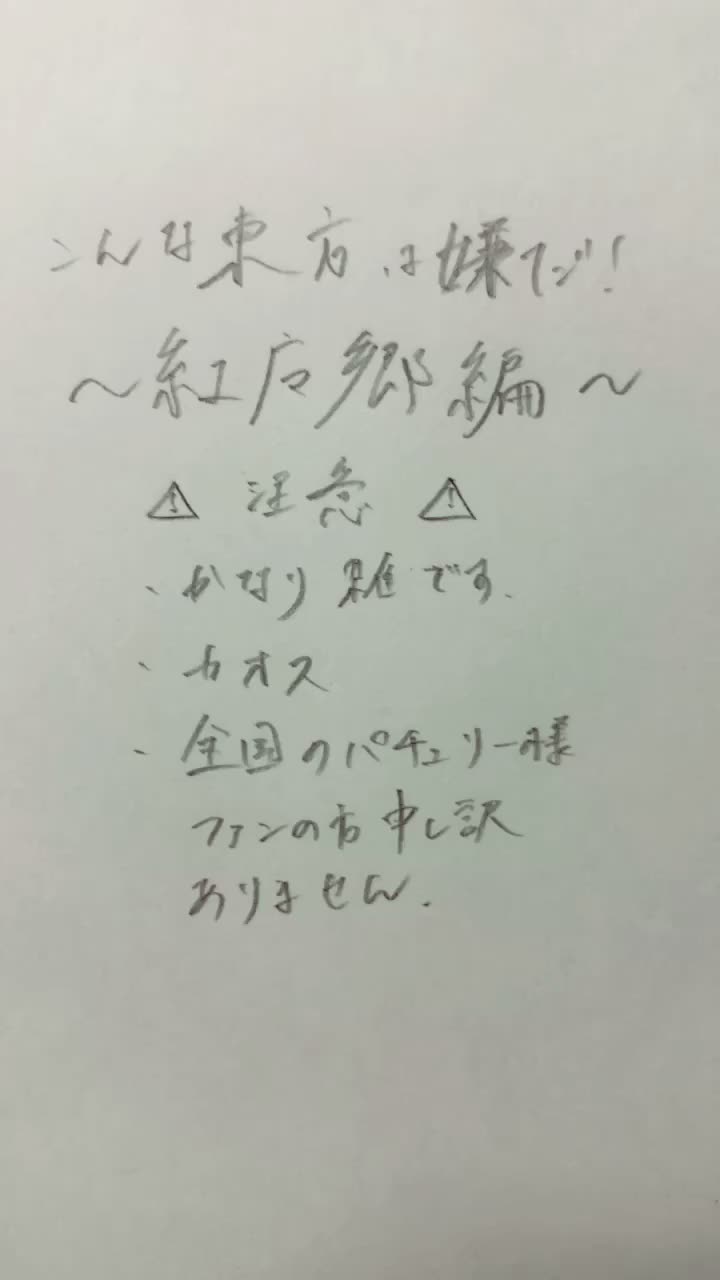 こんな東方は嫌だ!
〜紅広郷編〜
⚠ 注意 ⚠
・かなり雑です.
・カオス
・全国のパチュリー様
ファンの方申し訳
ありません.